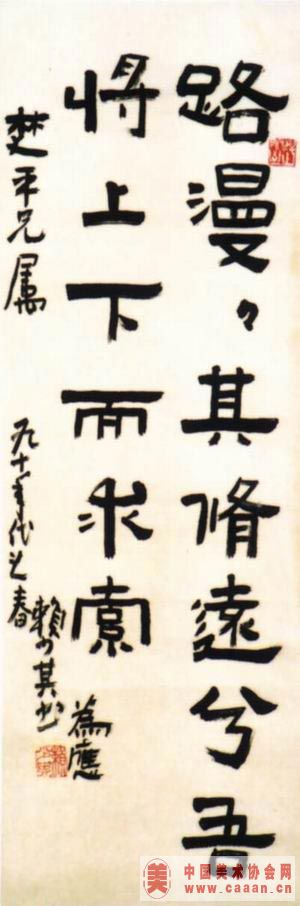 路漫々其脩遠兮吾
将上下而求索 為應
楚平兄属 九十年代之春 賴少其书
美
中国美术协会网
www.caaan.cn